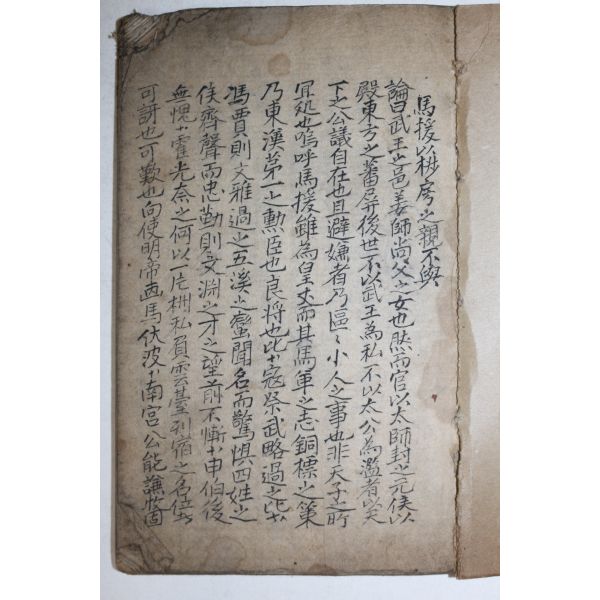 馬援以椒房之親不與
論曰武王之邑姜師尚父之女也然而官以太師封之元侯以
殿東方之蕃屏後世不以武王為私不以太公為濫者以天
下之公議自在也且避嫌者乃區〻小人之事也非天子之所
宜処也嗚呼馬援雖為皇丈而其馬革之志銅標之策
乃東漢第一之勲臣也良將也比寇祭武略過之比
馮賈則文雅過之五溪之蠻聞名而驚惧四姓之
侯齊聲而忠勤則文淵之才之望前不慚申伯後
無愧霍光奈之何以一片椒私負雲臺列宿之名位
可訝也可歎也向使明帝画馬伏波南宮公能謙恤